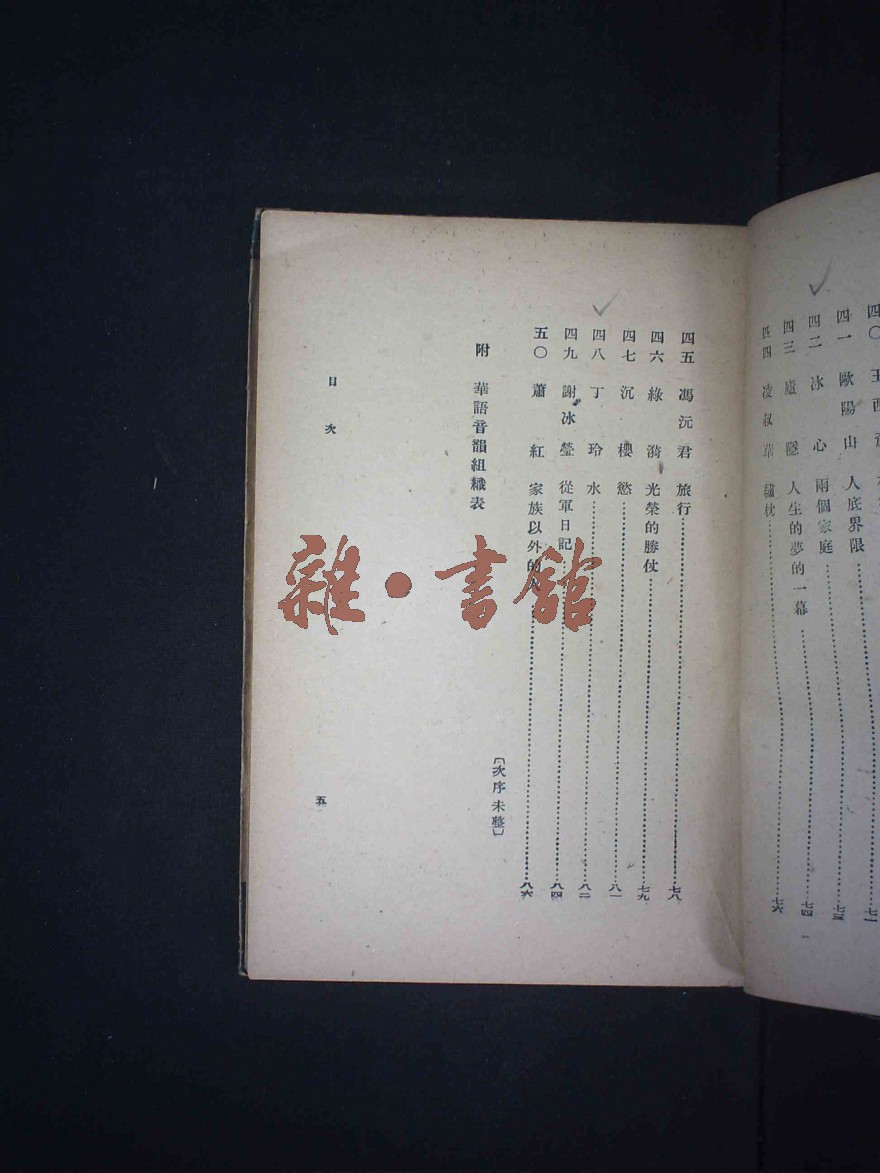 四〇 王西
四一 歐陽山 人底界限……七一
四二 冰心 兩個家庭……七三
四三 廬隱 人生的夢的一幕……七四
四四 凌叔華 繡枕……七六
四五 馮沅君 旅行……七八
四六 綠漪 光榮的勝仗……七九
四七 沉櫻 慾……八一
四八 丁玲 水……八二
四九 謝冰瑩 從軍日記……八四
五〇 蕭紅 家族以外的……八六
附 華語音韻組織表
〔次序未整〕
目次
五
雜·書館